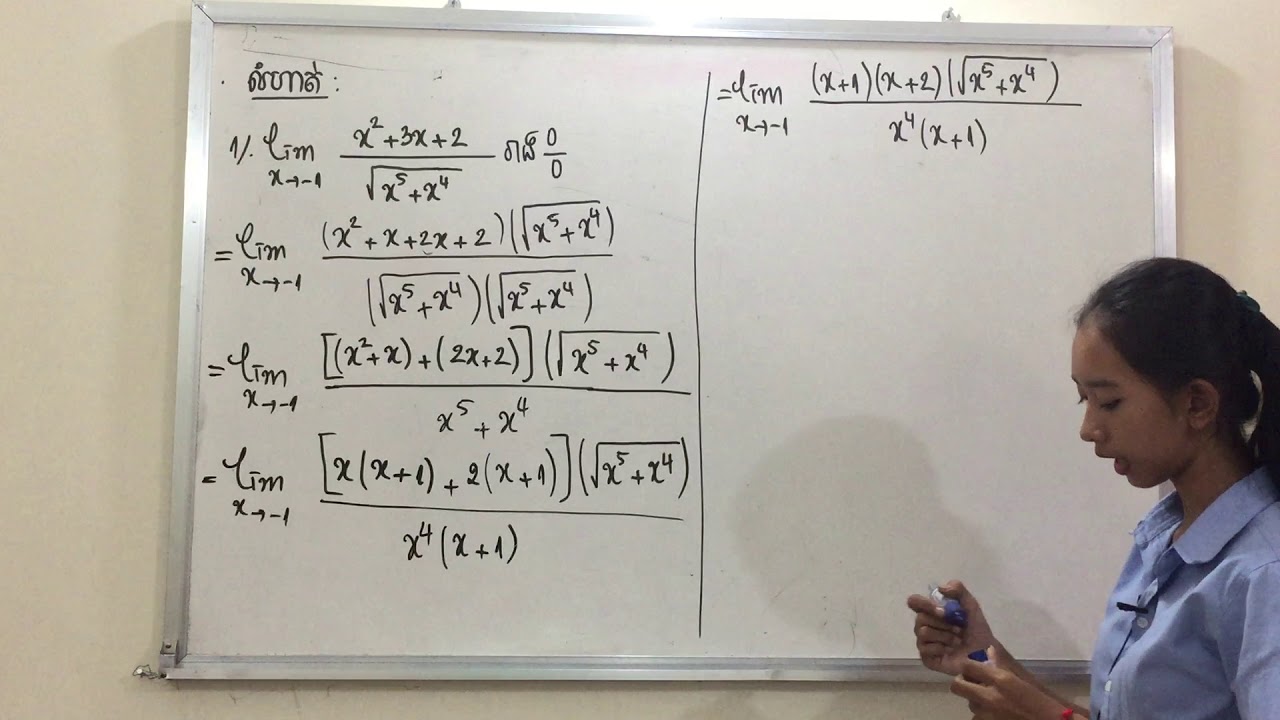 លំហាត់ :
1/. lim x→-1 (x² + 3x + 2) / √(x⁵ + x⁴) រាង 0/0
= lim x→-1 (x² + x + 2x + 2)(√(x⁵ + x⁴)) / (√(x⁵ + x⁴))(√(x⁵ + x⁴))
= lim x→-1 [(x² + x) + (2x + 2)](√(x⁵ + x⁴)) / x⁵ + x⁴
= lim x→-1 [x(x + 1) + 2(x + 1)](√(x⁵ + x⁴)) / x⁴(x + 1)
= lim x→-1 (x + 1)(x + 2)(√(x⁵ + x⁴)) / x⁴(x + 1)